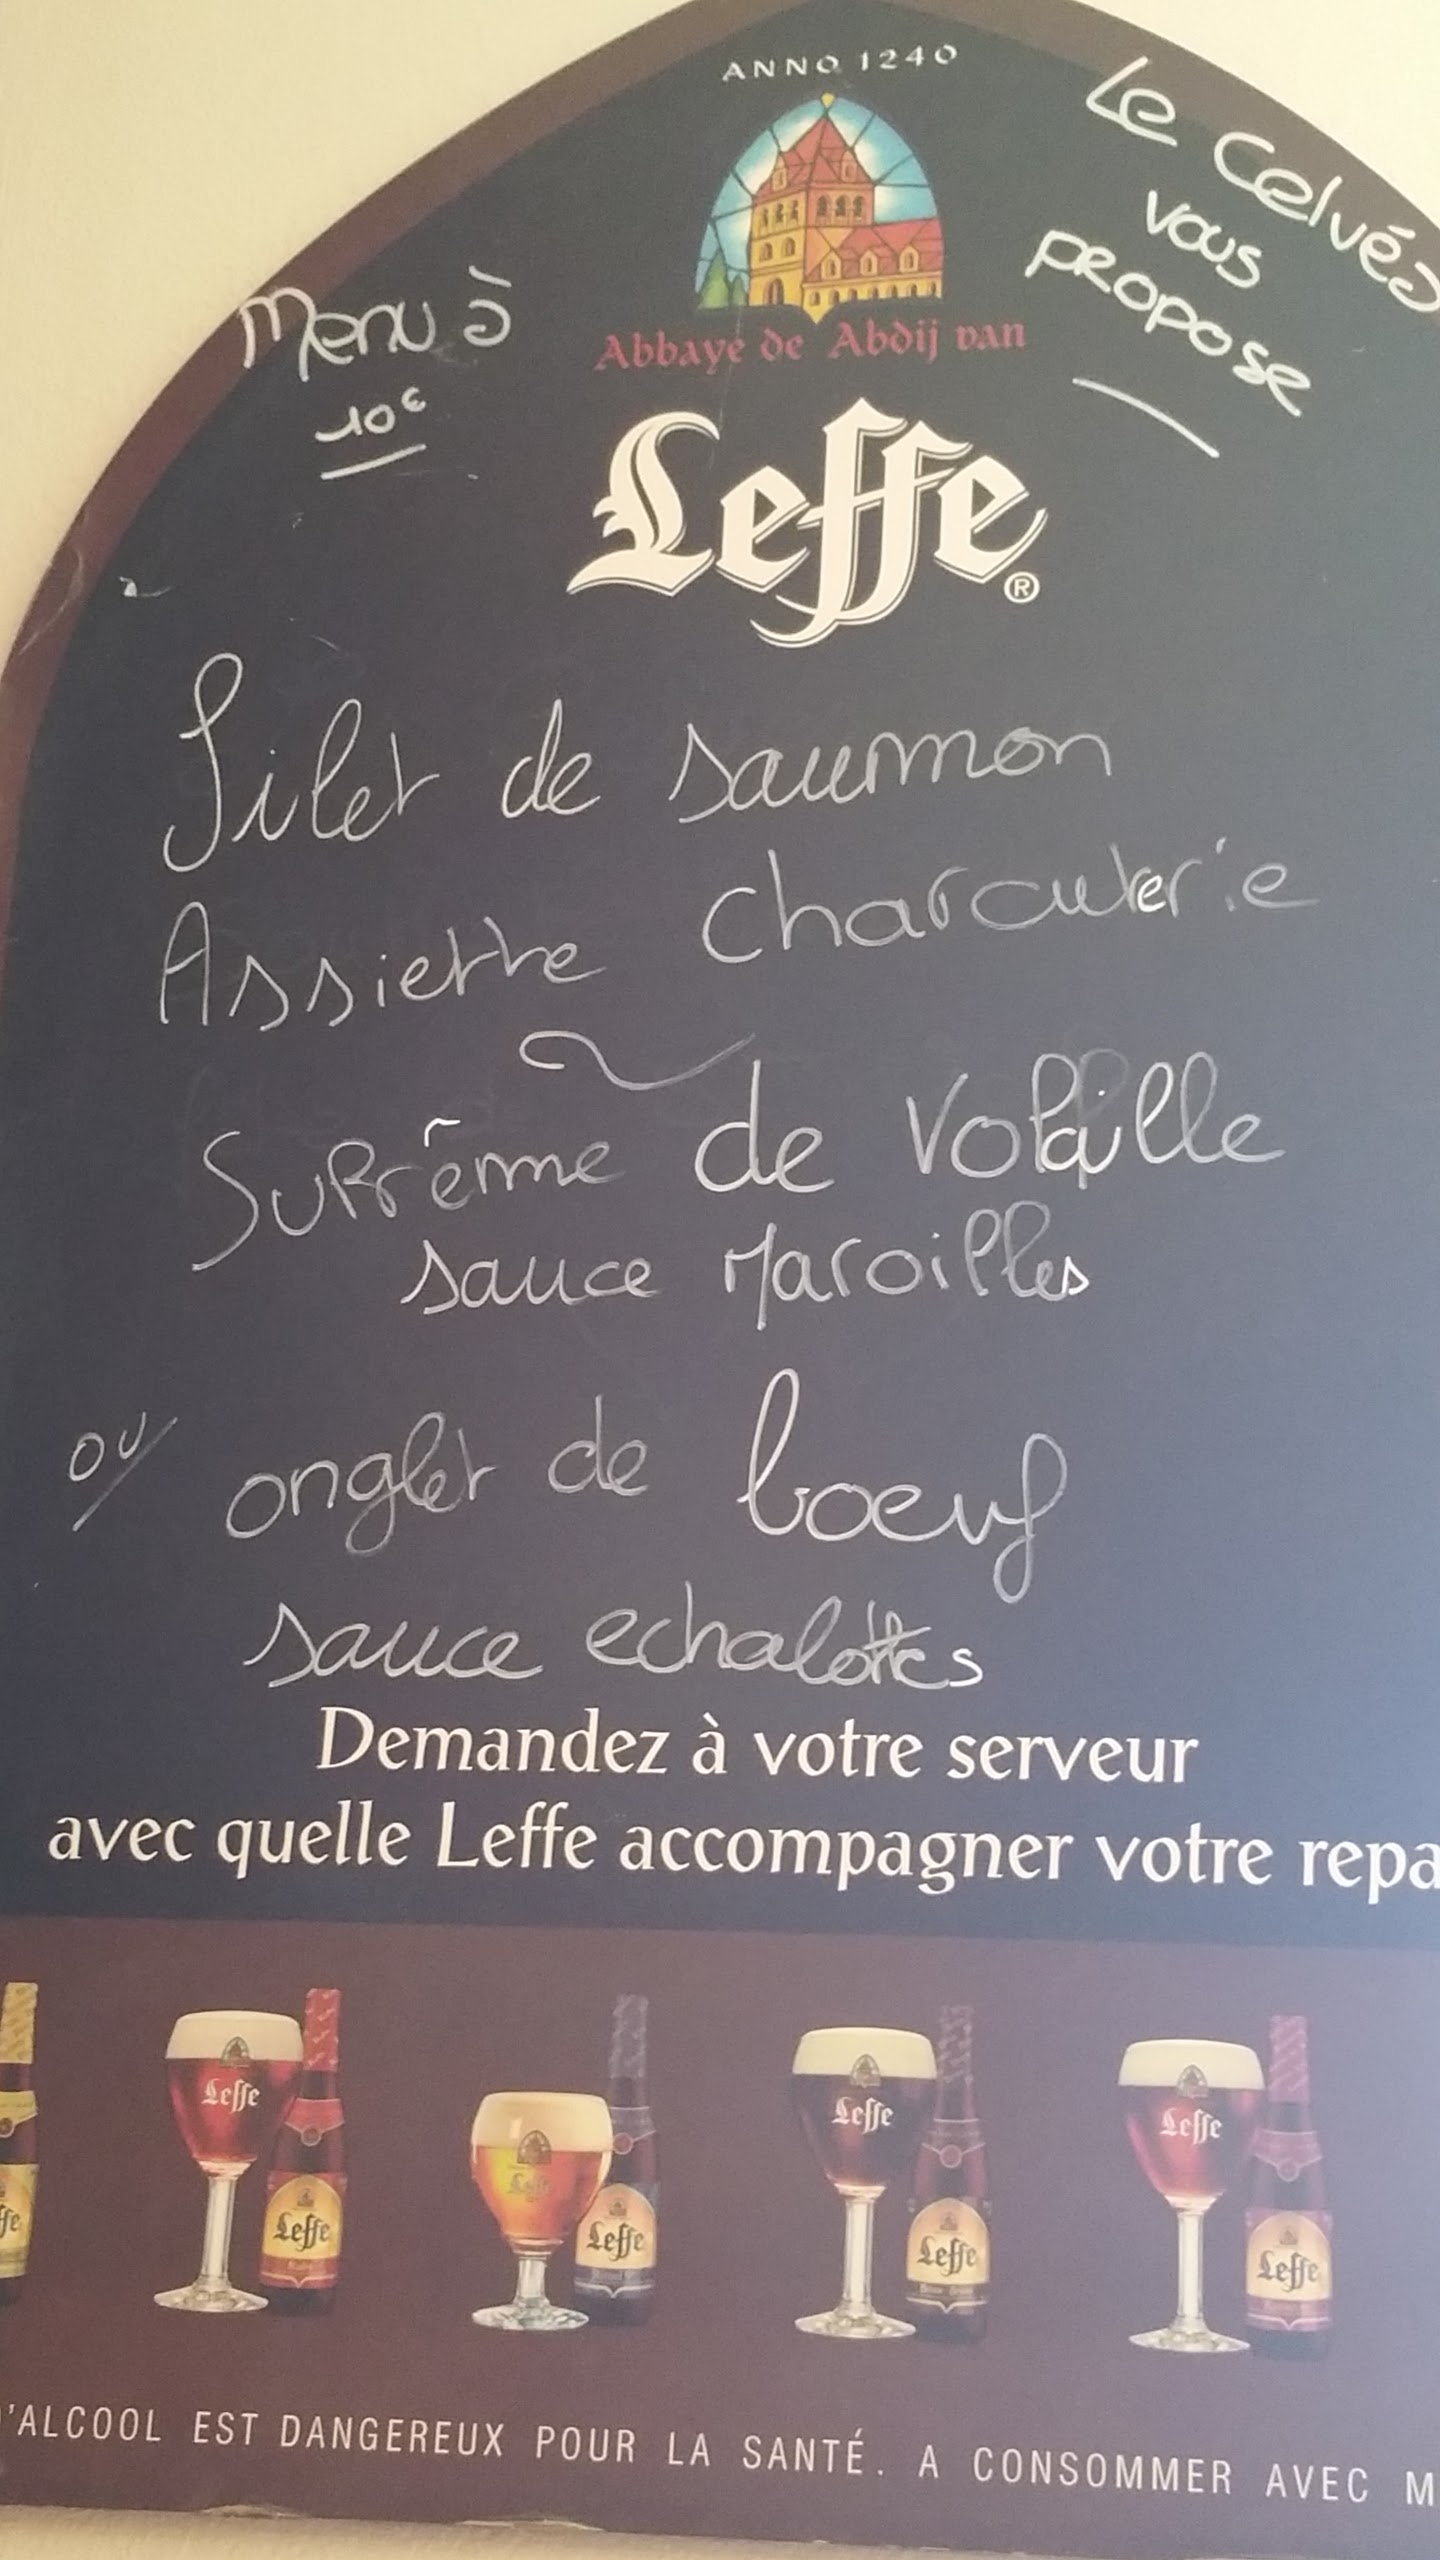 ANNO 1240
Le Celvéa
vous
propose
Menu à
10€
Abbaye de Abdij van
Leffe®
Filet de saumon
Assiette charcuterie
Suprême de Volaille
sauce Maroilles
ou onglet de boeuf
sauce echalottes
Demandez à votre serveur
avec quelle Leffe accompagner votre repa
Leffe Leffe Leffe Leffe
Leffe Leffe Leffe Leffe
'ALCOOL EST DANGEREUX POUR LA SANTÉ. A CONSOMMER AVEC M